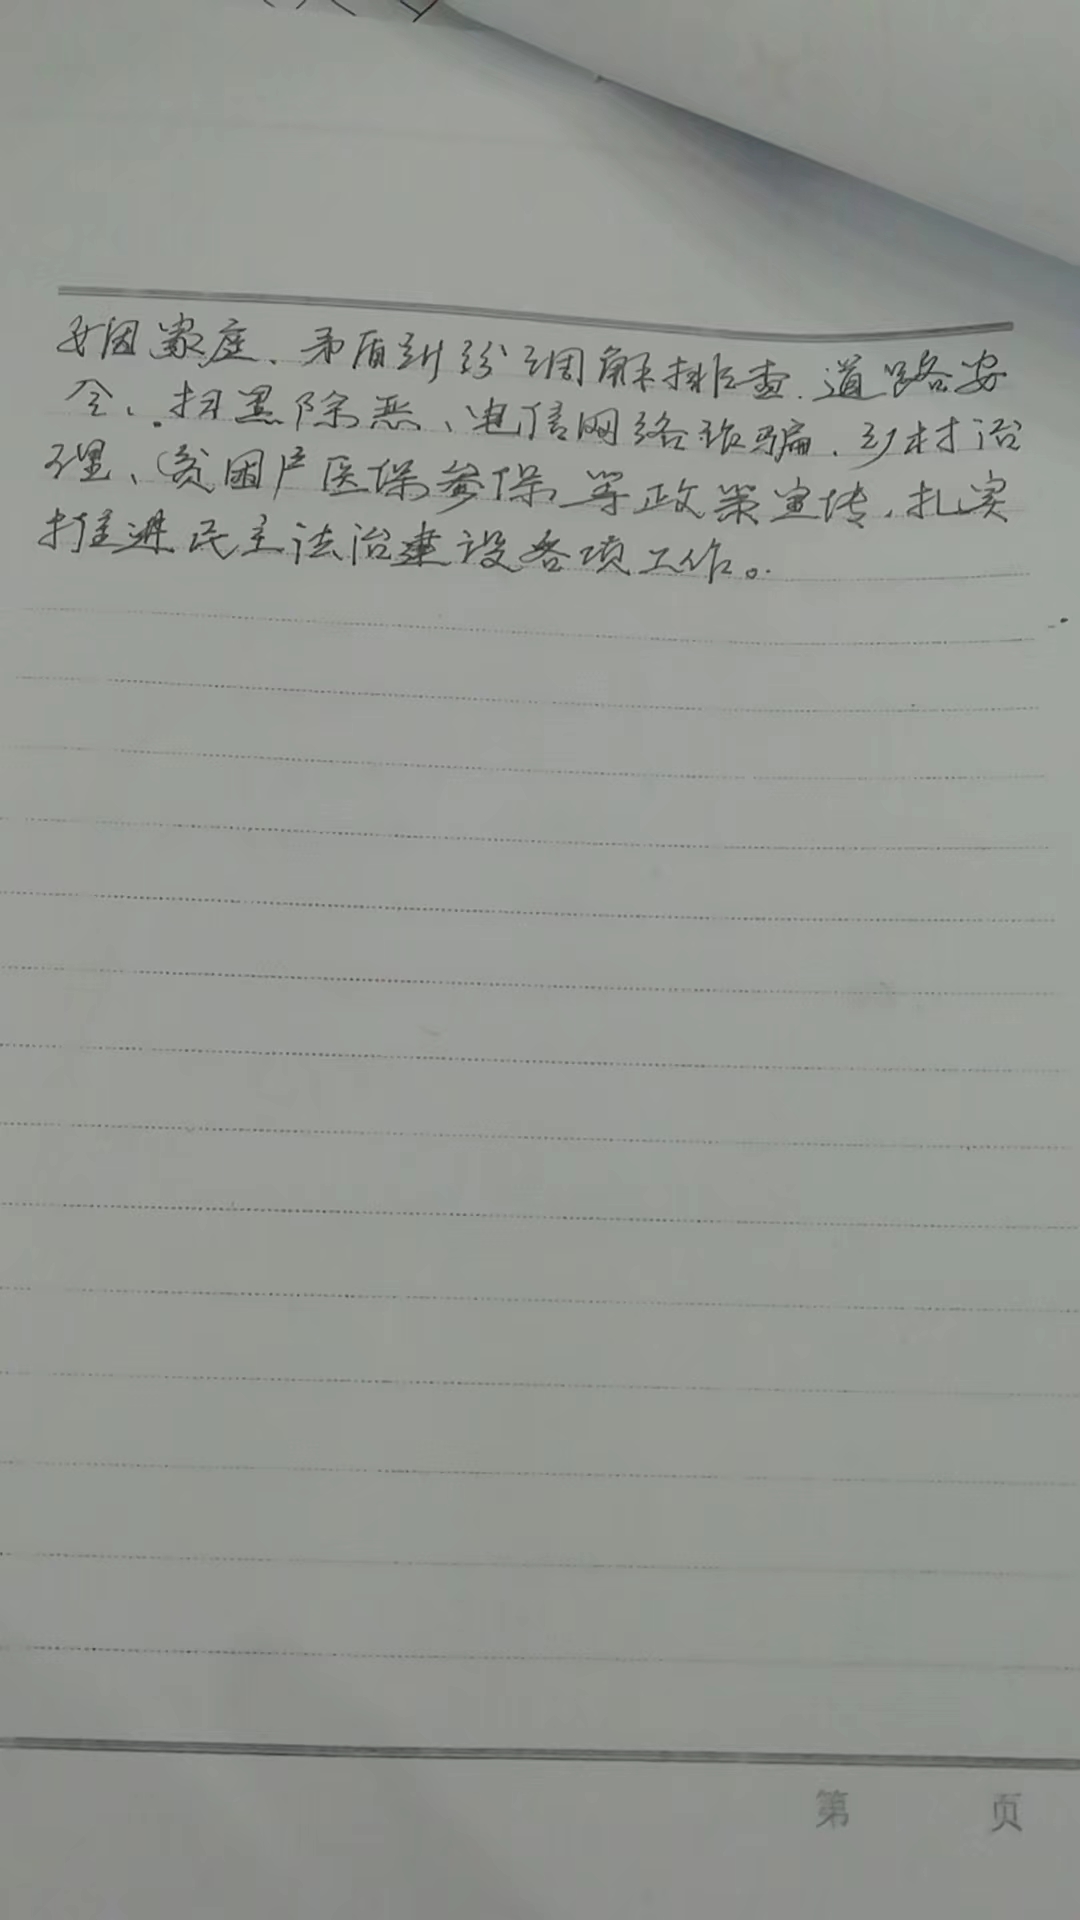 姻家庭、矛盾纠纷调解排查、道路安
全、扫黑除恶、电信网络诈骗、乡村治
理、贫困户医保参保等政策宣传，扎实
推进民主法治建设各项工作。
第 页